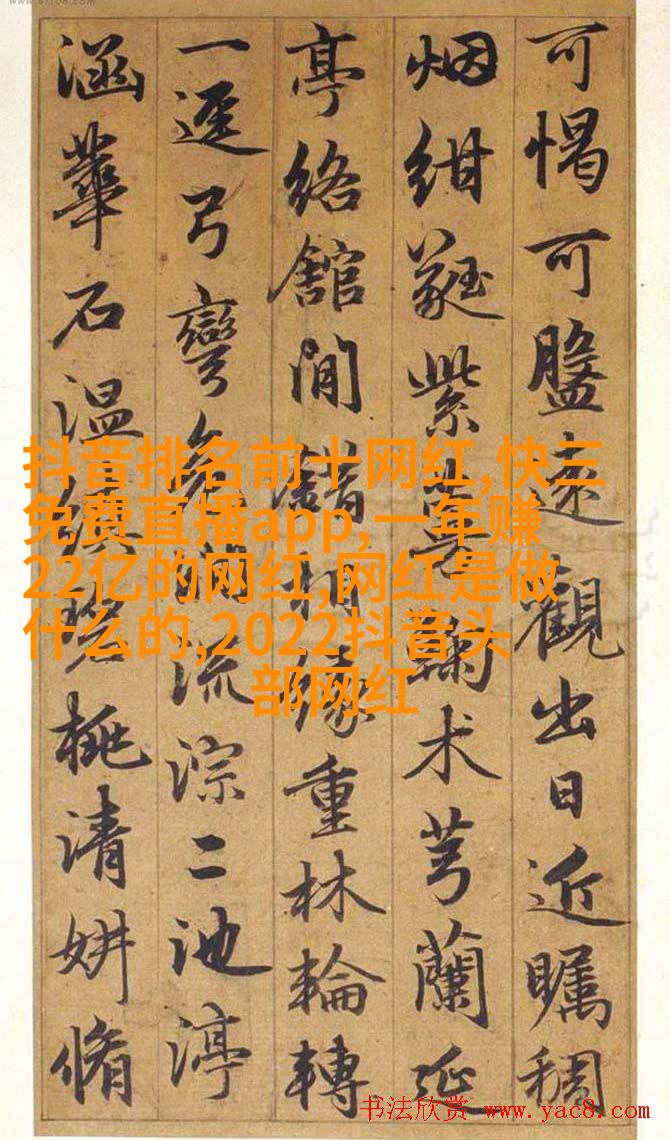 可愒可盥遠觀出日近矚稠
烟紺蕤紫术芎蘭延
亭絡館間錯緣重林輪轉
一逕弓彎流淙二池渟
涵華石温桃清妍脩
抖音排名前十网红,快三
免费直播app,一年赚
22亿的网红,网红是做
什么的,2022抖音头
部网红
书法欣赏 www.yac8.com